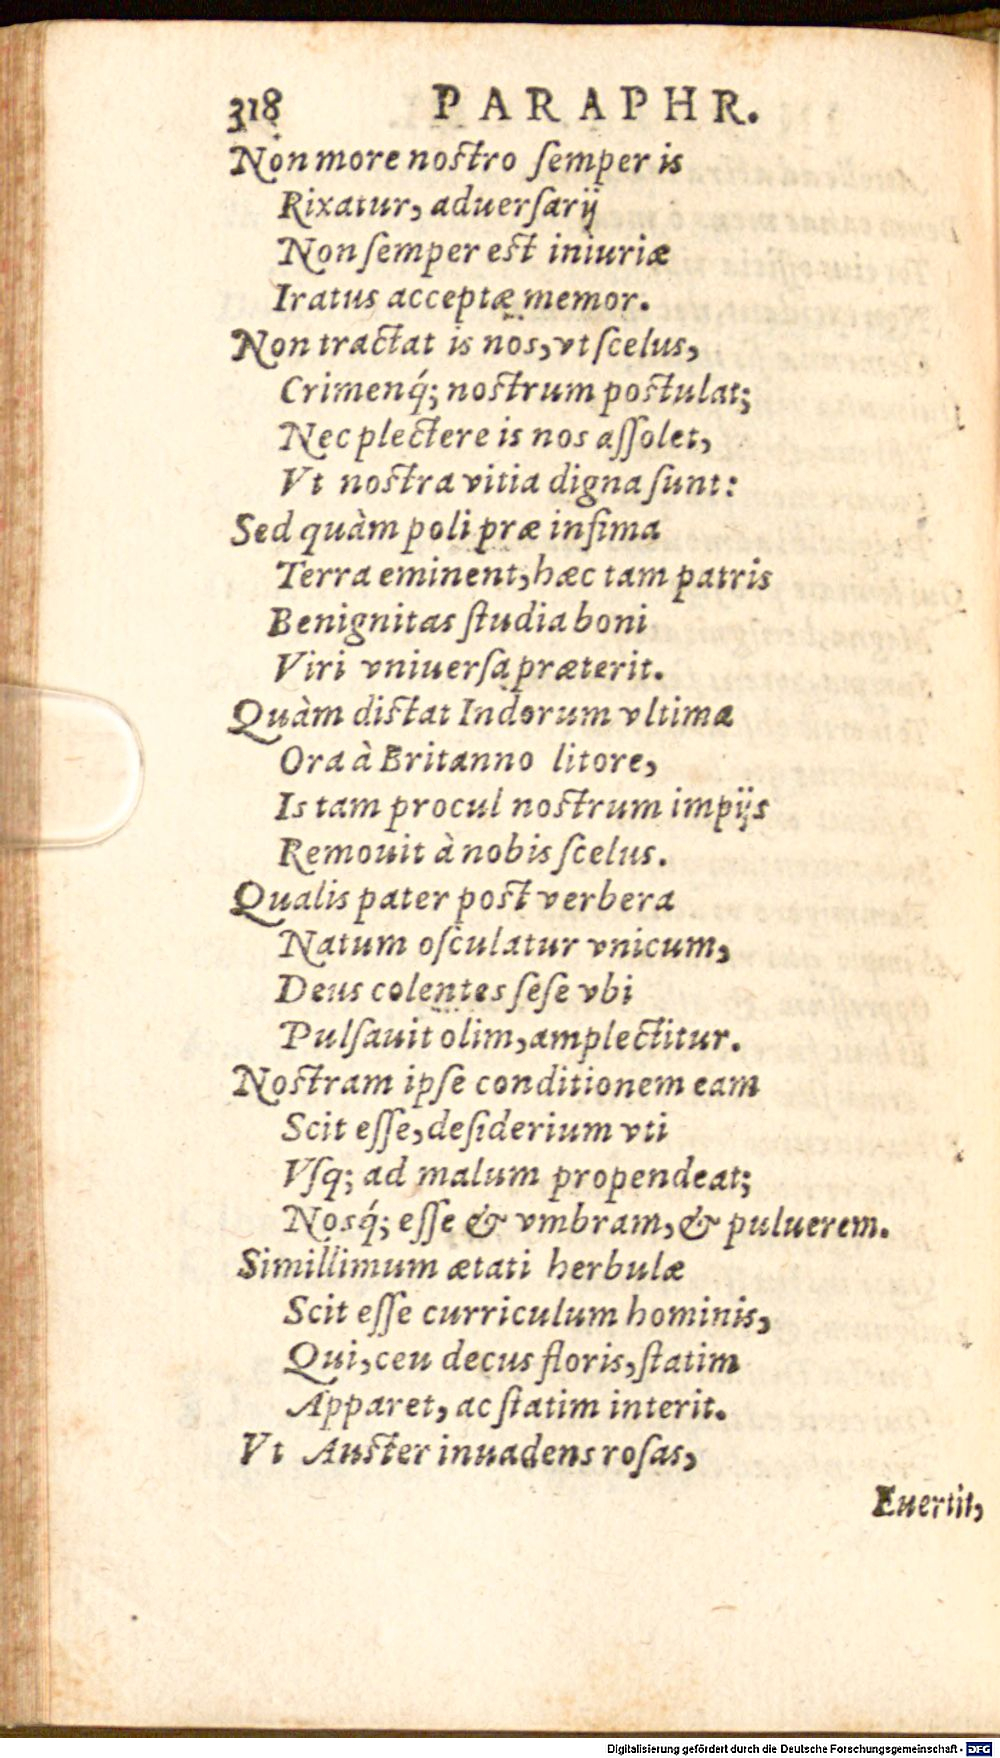 318 PARAPHR.
Non more nostro ſemper is
Rixatur, aduerſarij
Non ſemper est iniuriæ
Iratus acceptæ memor.
Non tractat is nos, vt ſcelus,
Crimenq́; nostrum postulat;
Nec plectere is nos aſſolet,
Vt nostra vitia digna ſunt:
Sed quàm poli præ infima
Terra eminent, hæc tam patris
Benignitas ſtudia boni
Viri vniuerſa præterit.
Quàm distat Indorum vltima
Ora à Britanno litore,
Is tam procul nostrum impijs
Remouit à nobis ſcelus.
Qualis pater post verbera
Natum oſculatur vnicum,
Deus colentes ſeſe vbi
Pulſauit olim, amplectitur.
Nostram ipſe conditionem eam
Scit eſſe, deſiderium vti
Vſq; ad malum propendeat;
Nosq́; eſſe & vmbram, & puluerem.
Simillimum ætati herbulæ
Scit eſſe curriculum hominis,
Qui, ceu decus floris, ſtatim
Apparet, ac ſtatim interit.
Vt Auster inuadens roſas,
Euertit,
Digitalisierung gefördert durch die Deutsche Forschungsgemeinschaft - DFG